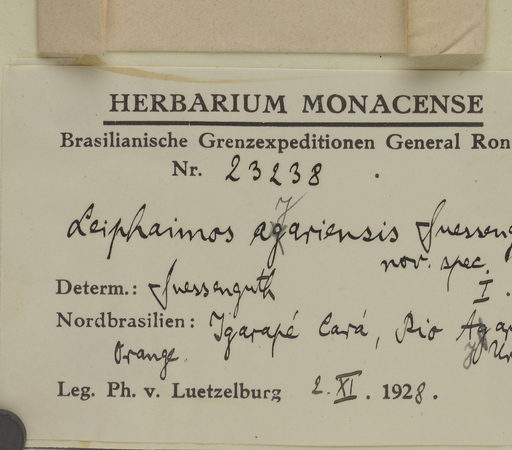 HERBARIUM MONACENSE
Brasilianische Grenzexpeditionen General Ron
Nr. 23238 .
Leiphaimos ajariensis Suesseng
nov. spec.
Determ.: Suessenguth I.
Nordbrasilien: Igarapé Cará, Rio Ajar
Orange. Ur
Leg. Ph. v. Luetzelburg 2. XI. 1928.